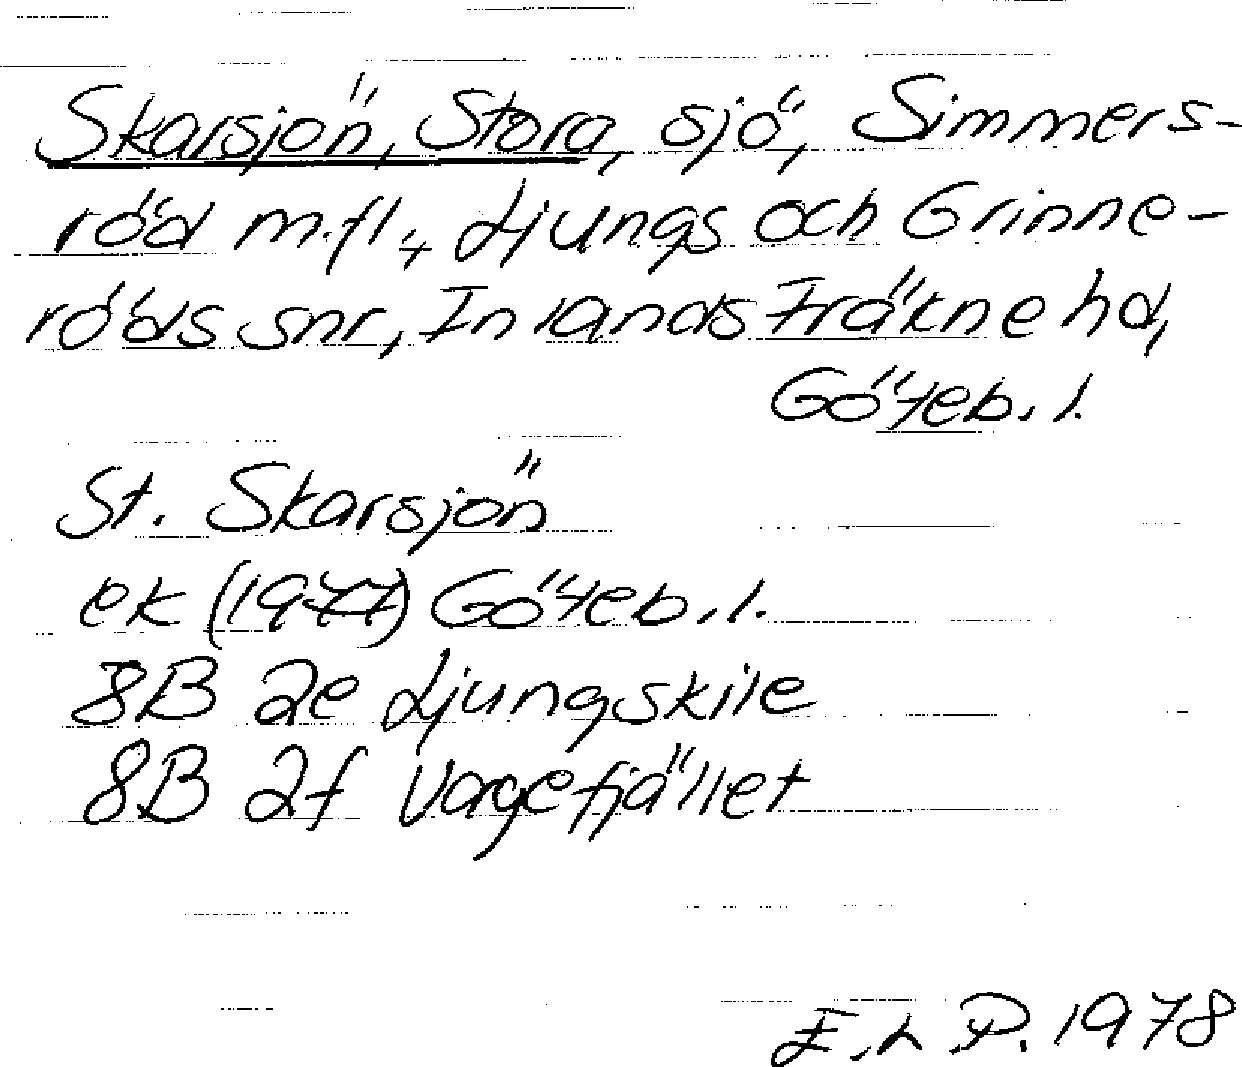 Skarsjön, Stora, sjö, Simmers-
röd m.fl., Ljungs och Grinne-
röds snr, Inlands Fräkne hd,
Göteb. l.
St. Skarsjön
ek (1977) Göteb. l.
8B 2e Ljungskile
8B 2f Vargefjället
E. L P. 1978